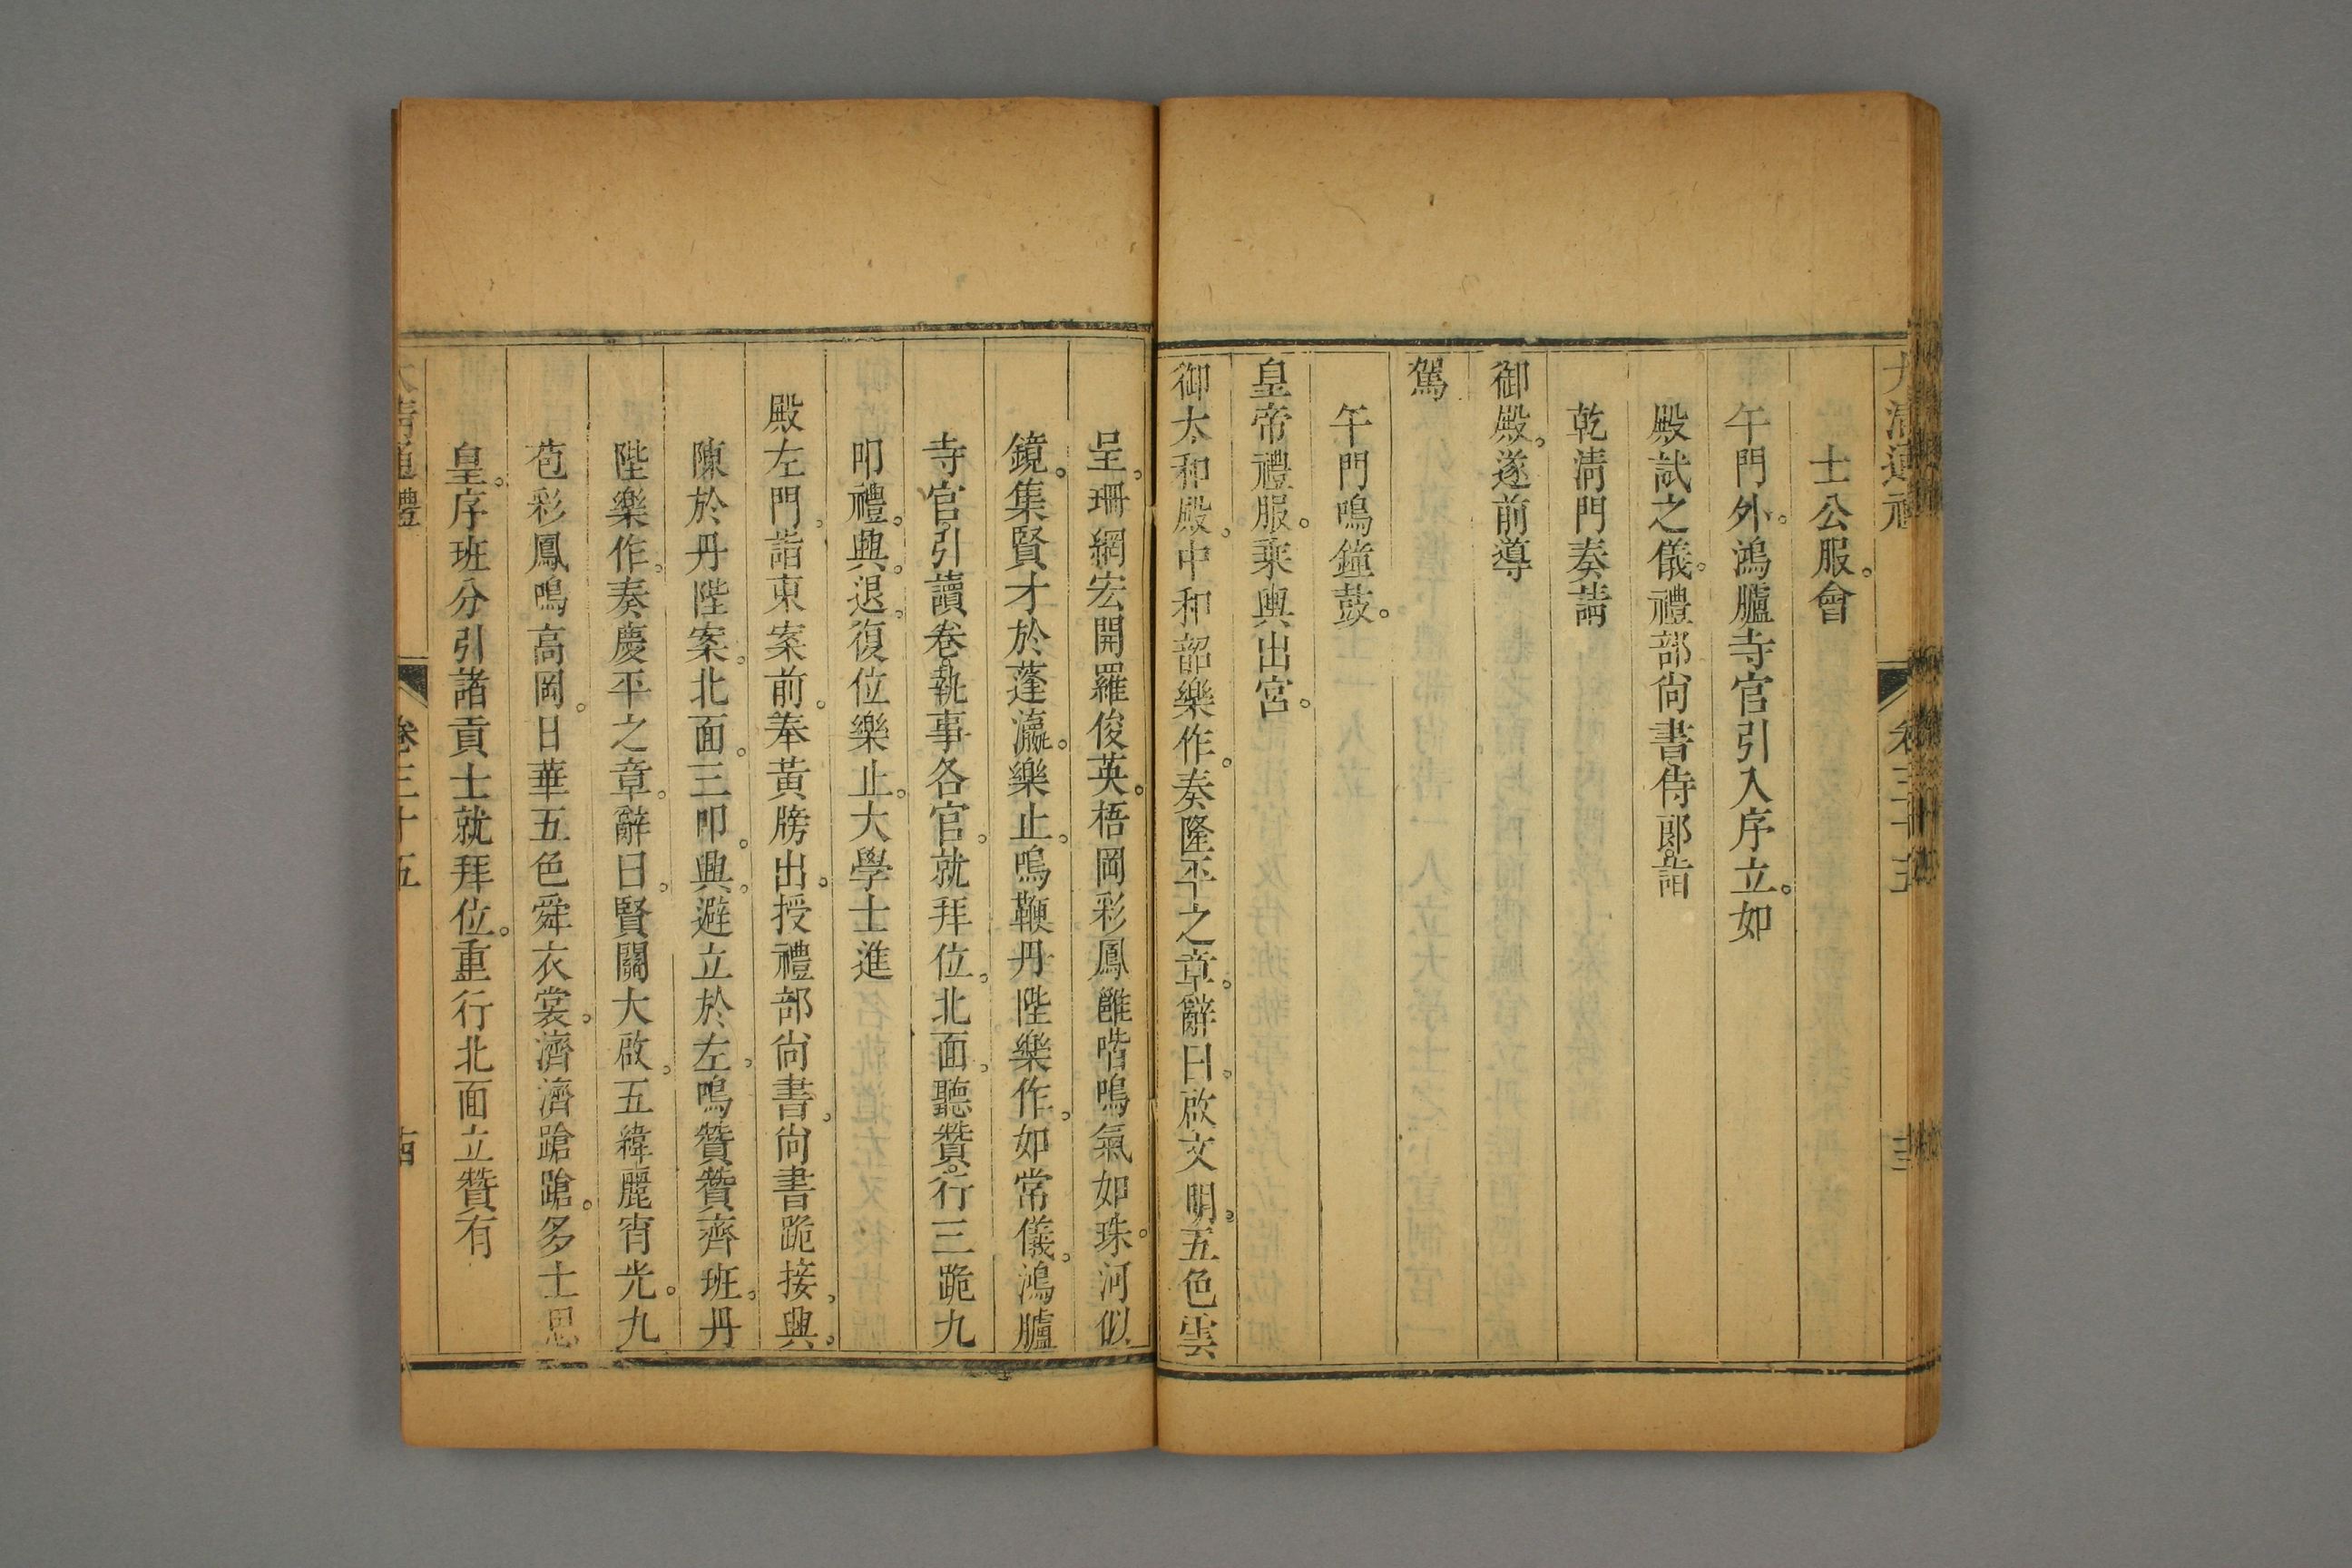 大清通禮 卷三十五
士公服。會
午門外。鴻臚寺官引入序立。如
殿試之儀。禮部尚書侍郎。詣
乾淸門奏請
御殿。遂前導
駕
午門鳴鐘鼓。
皇帝禮服。乘輿出宮。
御太和殿。中和韶樂作。奏隆平之章。辭曰。啟文明。五色雲
呈。珊網宏開羅俊英。梧岡彩鳳雝喈鳴氣如珠。河似
鏡。集賢才於蓬瀛。樂止。鳴鞭丹陛樂作。如常儀。鴻臚
寺官。引讀卷。執事各官。就拜位。北面。聽贊。行三跪九
叩禮。興。退。復位樂止。大學士進
殿左門。詣東案前。奉黃牓出。授禮部尚書。尚書跪接。興。
陳於丹陛案。北面。三叩。興。避立於左。鳴贊贊齊班。丹
陛樂作。奏慶平之章。辭曰。賢關大啟。五緯麗宵光。九
苞彩鳳鳴高岡。日華五色舜衣裳。濟濟蹌蹌。多士思
皇。序班分引諸貢士就拜位。重行北面立贊有
大清通禮 卷三十五